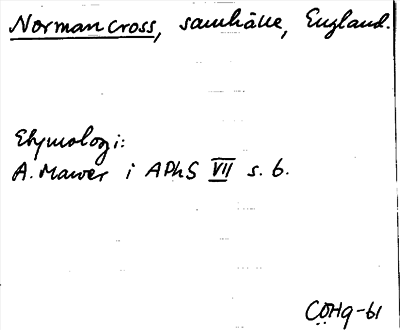 Normancross, samhälle, England.
Etymologi:
A. Mawer i APhS VII s. 6.
CÖHg-61